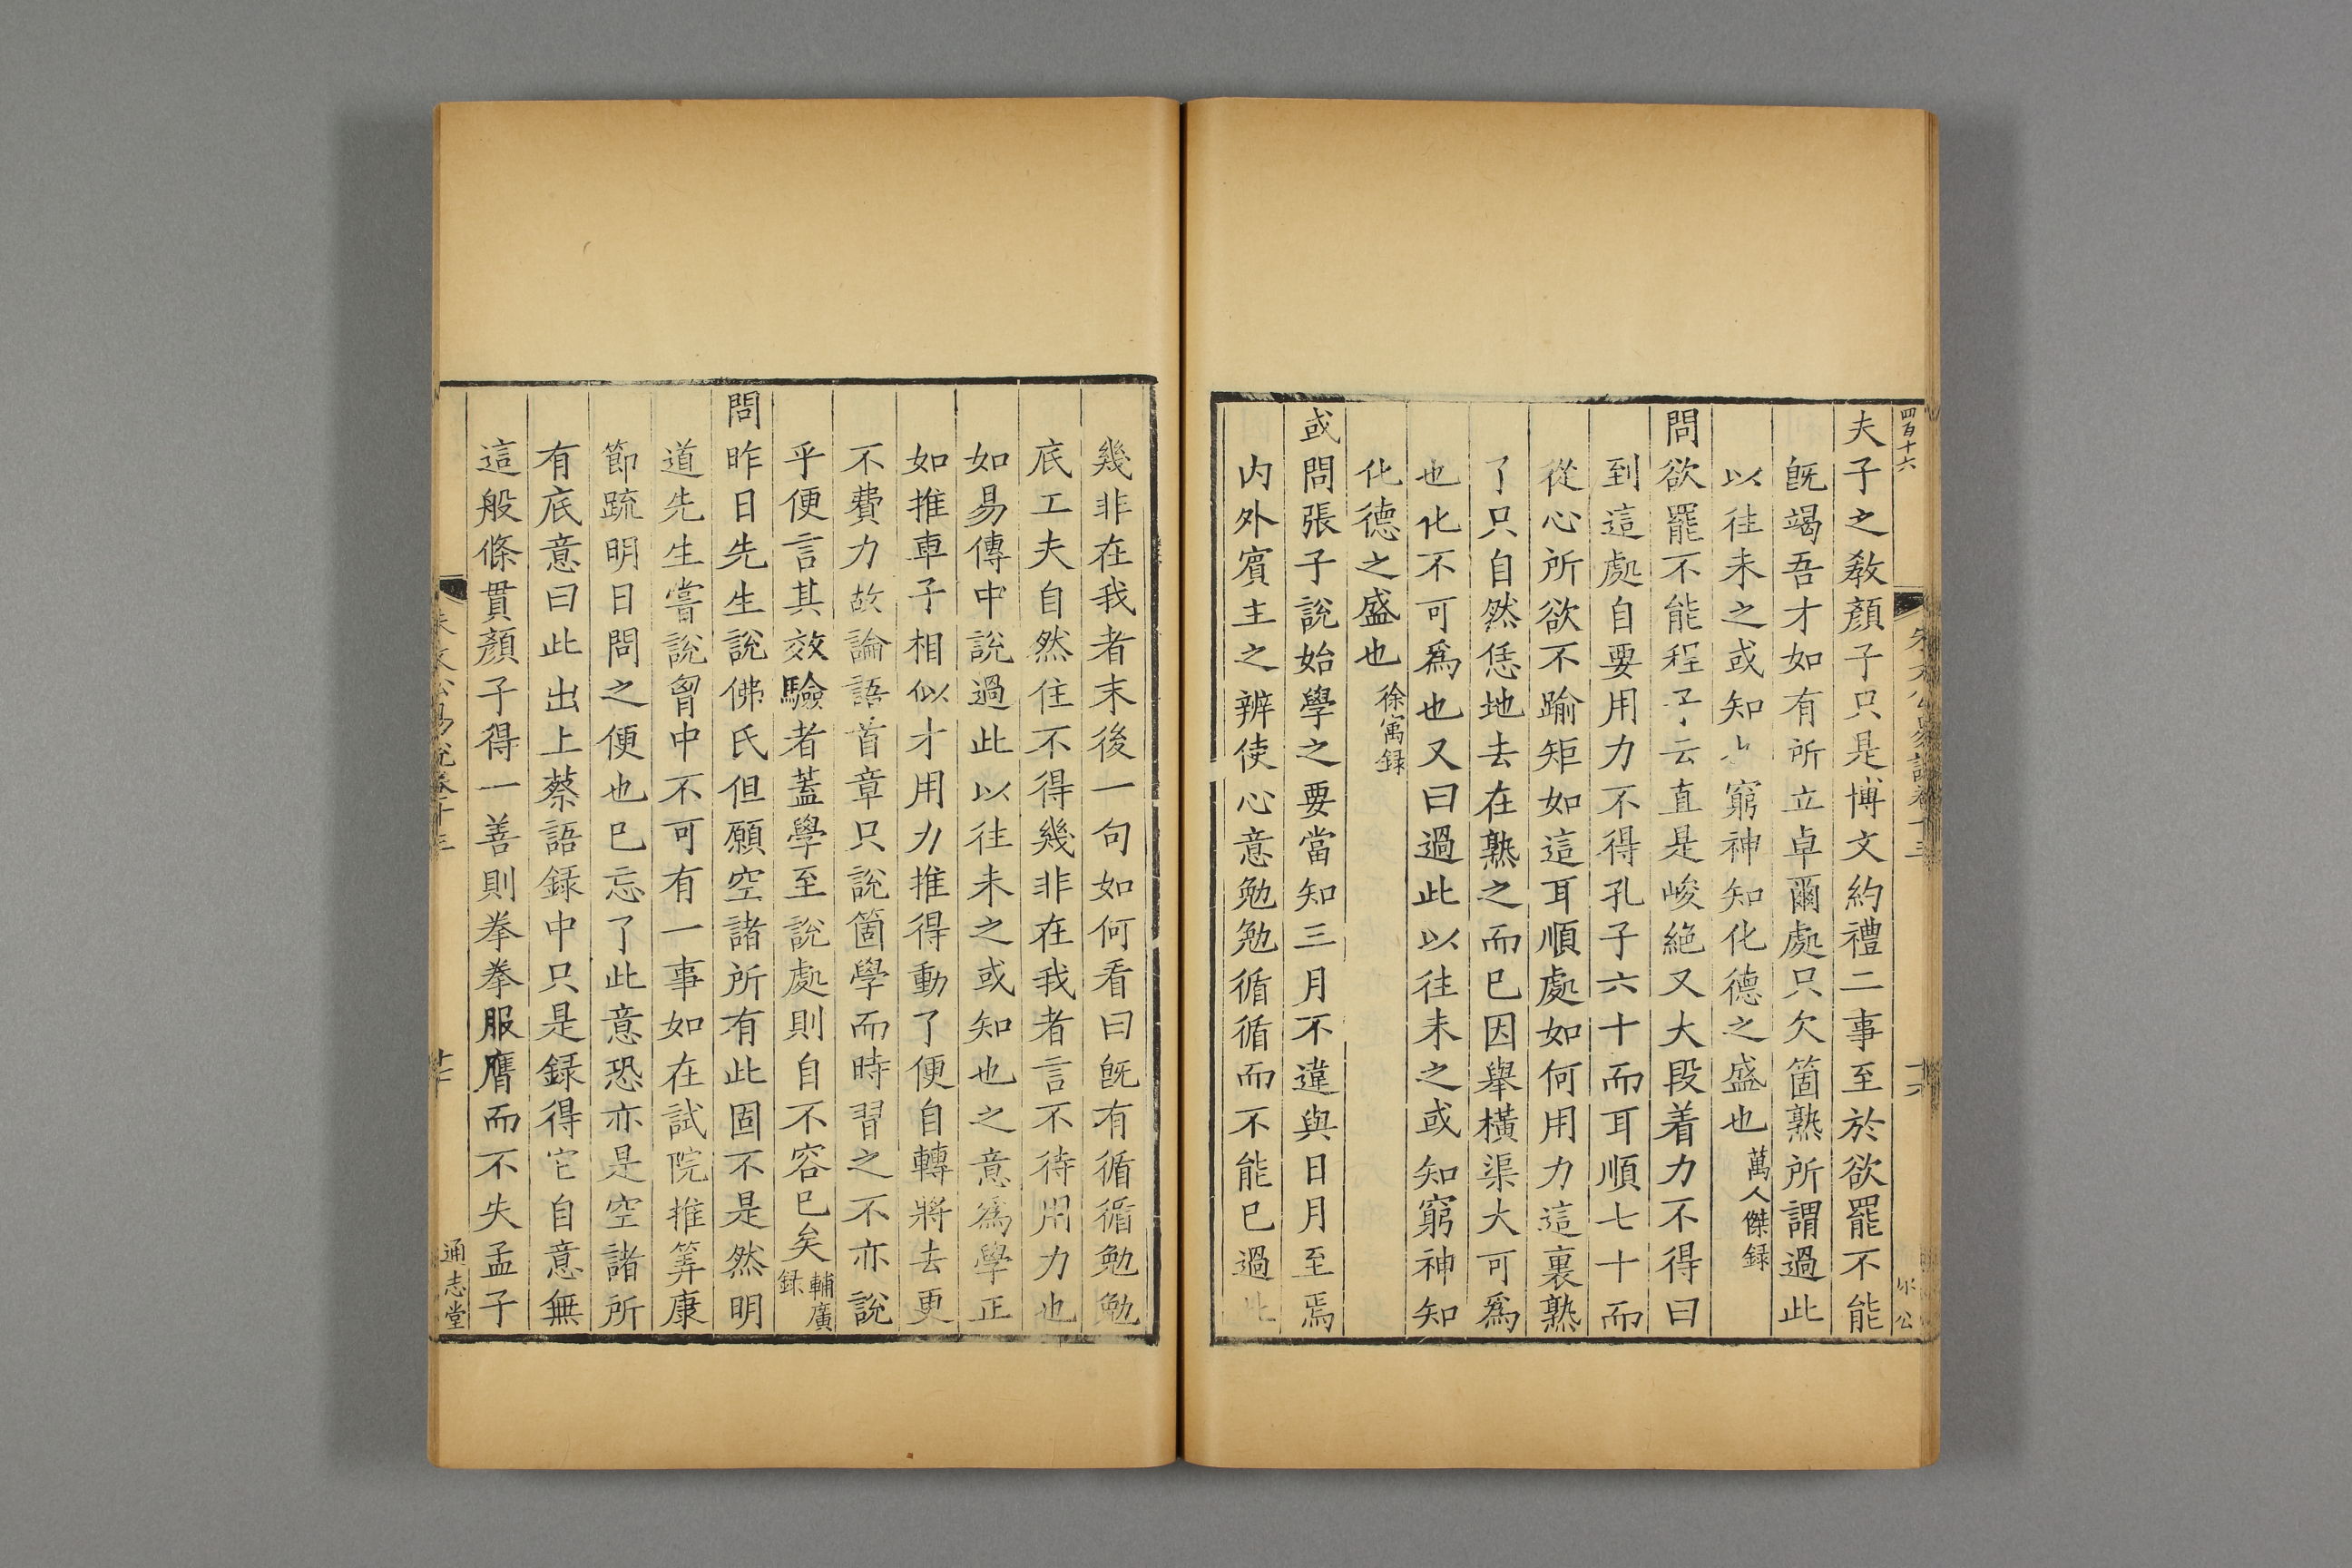 四百十六
夫子之教顏子只是博文約禮二事至於欲罷不能
旣竭吾才如有所立卓爾處只欠箇熟所謂過此
以往未之或知 窮神知化德之盛也萬人傑録
問欲罷不能程子云直是峻絶又大段着力不得曰
到這處自要用力不得孔子六十而耳順七十而
從心所欲不踰矩如這耳順處如何用力這裏熟
了只自然恁地去在熟之而已因舉橫渠大可爲
也化不可爲也又曰過此以往未之或知窮神知
化德之盛也徐㝢録
或問張子說始學之要當知三月不違與日月至焉
内外賓主之辨使心意勉勉循循而不能已過此
幾非在我者末後一句如何看曰旣有循循勉勉
底工夫自然住不得幾非在我者言不待用力也
如易傳中說過此以往未之或知也之意爲學正
如推車子相似才用力推得動了便自轉將去更
不費力故論語首章只說箇學而時習之不亦說
乎便言其效驗者蓋學至說處則自不容已矣輔廣録
問昨日先生說佛氏但願空諸所有此固不是然明
道先生嘗說胷中不可有一事如在試院推筭康
節疏明日問之便也已忘了此意恐亦是空諸所
有底意曰此出上蔡語録中只是録得它自意無
這般條貫顏子得一善則拳拳服膺而不失孟子
朱文公易說卷十三
通志堂